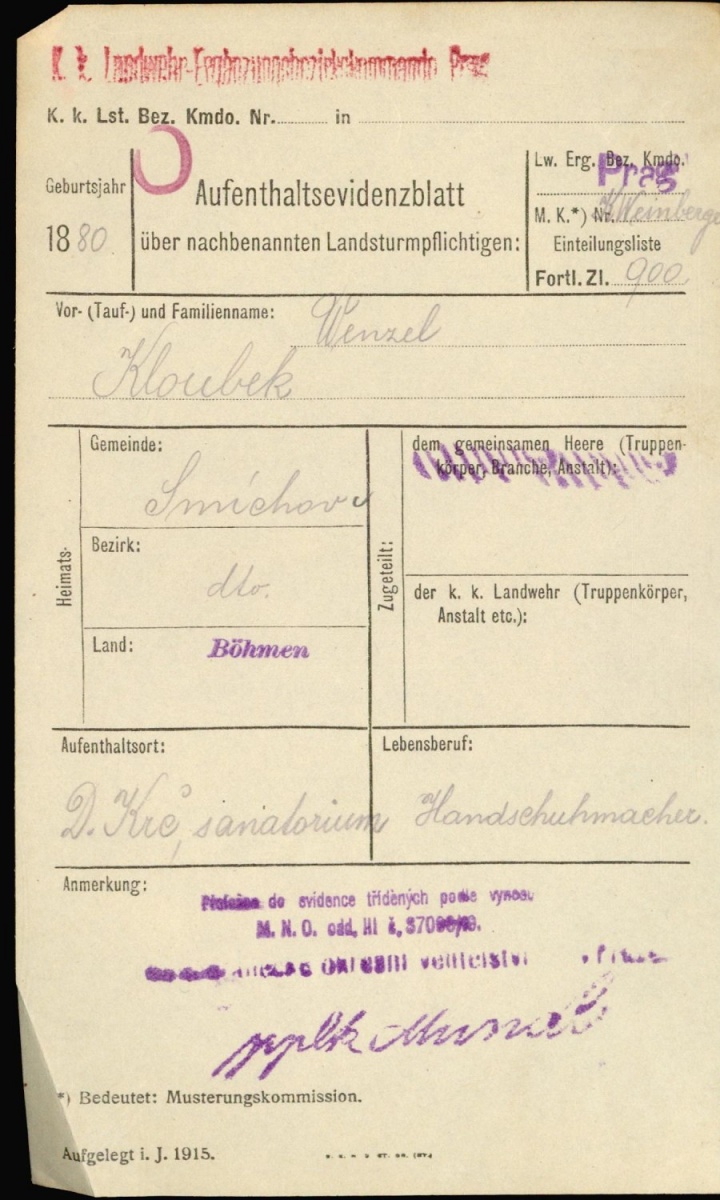 K. k. Landwehr-Ergänzungsbezirkskommando Prag
K. k. Lst. Bez. Kmdo. Nr. in
Geburtsjahr
1880
Aufenthaltsevidenzblatt
über nachbenannten Landsturmpflichtigen:
Lw. Erg. Bez. Kmdo.
Prag
M. K.*) Nr. K. Weinberge
Einteilungsliste
Fortl. Zl. 900
Vor- (Tauf-) und Familienname: Wenzel
Kloubek
Heimats-
Gemeinde:
Smíchov
Bezirk:
dto.
Land: Böhmen
Zugeteilt:
dem gemeinsamen Heere (Truppen-
körper, Branche, Anstalt):
der k. k. Landwehr (Truppenkörper,
Anstalt etc.):
Aufenthaltsort:
D. Krč, sanatorium
Lebensberuf:
Handschuhmacher.
Anmerkung:
do evidence tříděných podle vynosu
M. N. O. odd. III č.
okresní velitelství
pplk
*) Bedeutet: Musterungskommission.
Aufgelegt i. J. 1915.